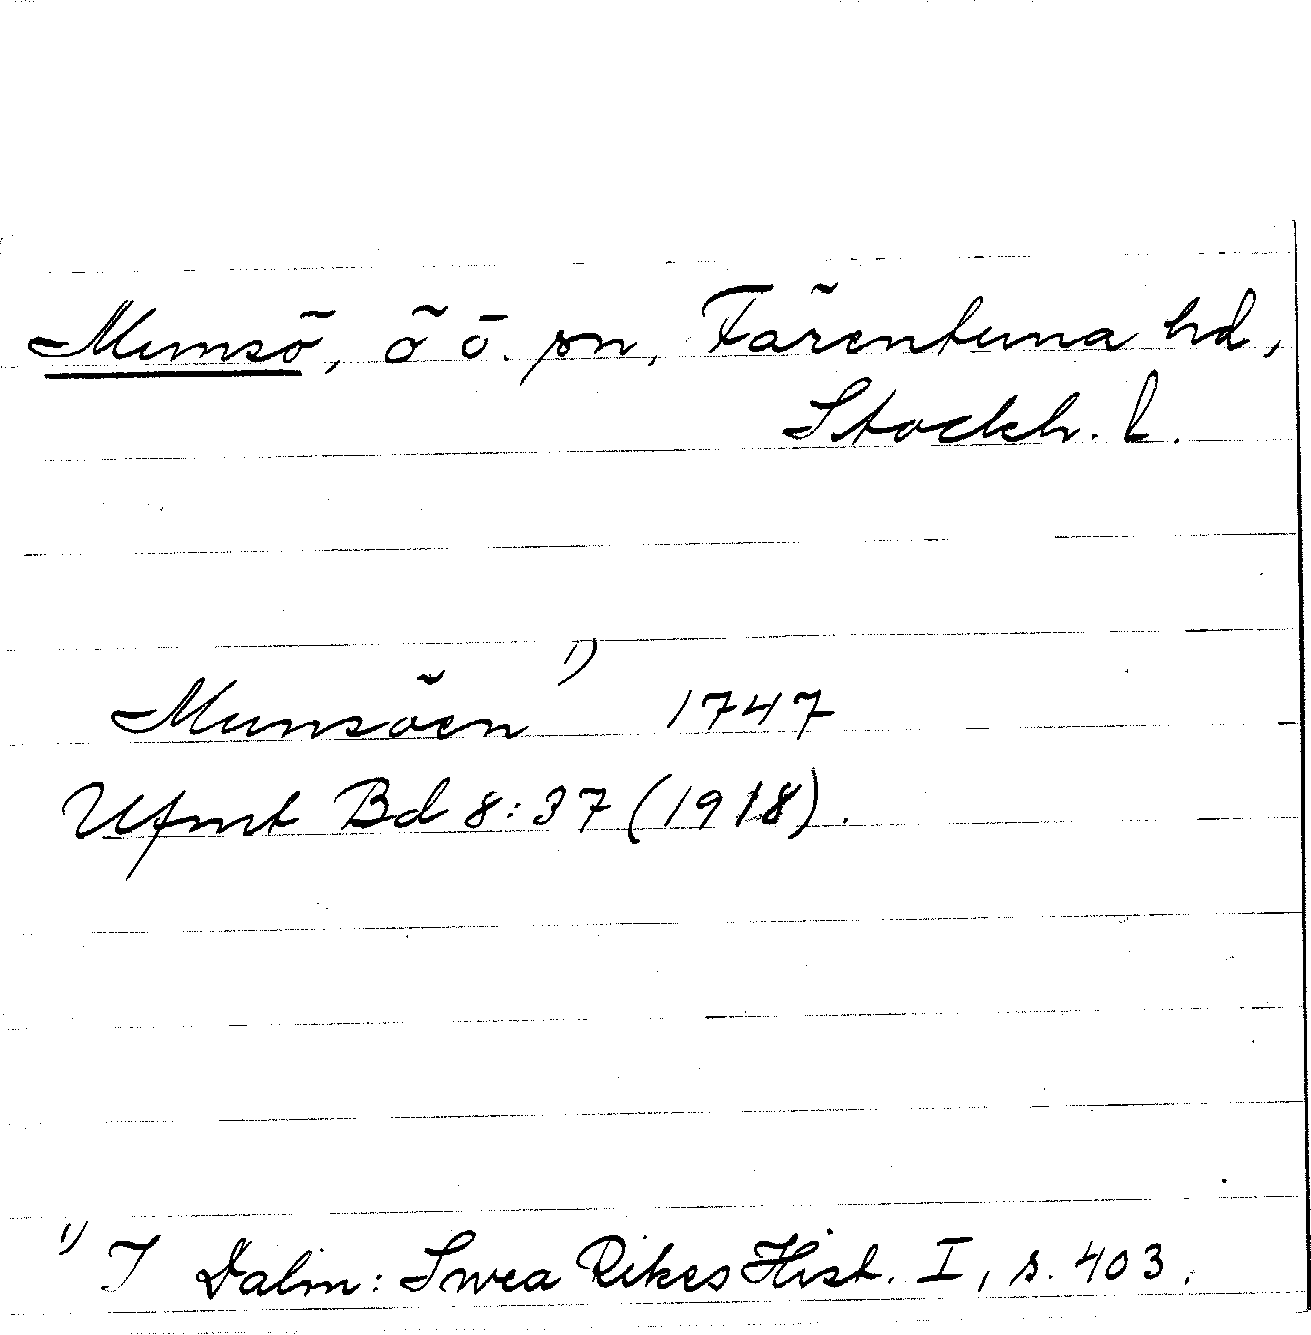 Munsö, ö o. sn, Färentuna hd,
Stockh. l.
Munsöen ¹⁾ 1747
Ufmt Bd 8:37 (1918).
¹⁾ I Dalin: Swea Rikes Hist. I, s. 403.